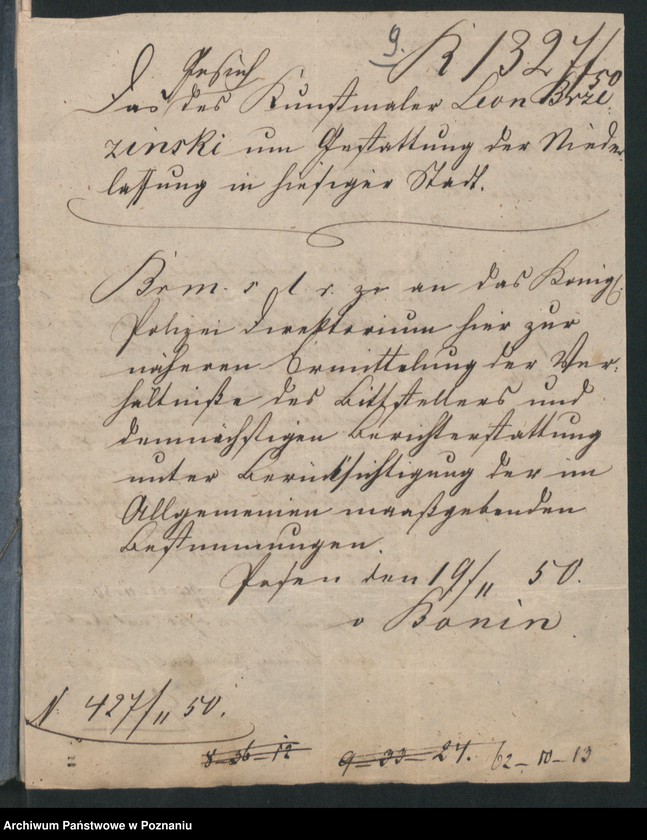 9.
K 1327/50
Gesuch
Das des Kunstmaler Leon Brze
zinski um Gestattung der Nieder
lassung in hiesiger Stadt.
Brm. s. l. r. zr an das Königl.
Polizei Direktorium hier zur
näheren Ermittelung der Ver-
hältniße des Bittstellers und
demnächstigen Berichterstattung
unter Berücksichtigung der im
Allgemeinen maaßgebenden
Bestimmungen.
Posen den 19/11 50.
v Bonin
N 427/11 50.
8-36-12 9-33-24. 62-10-13
Archiwum Państwowe w Poznaniu